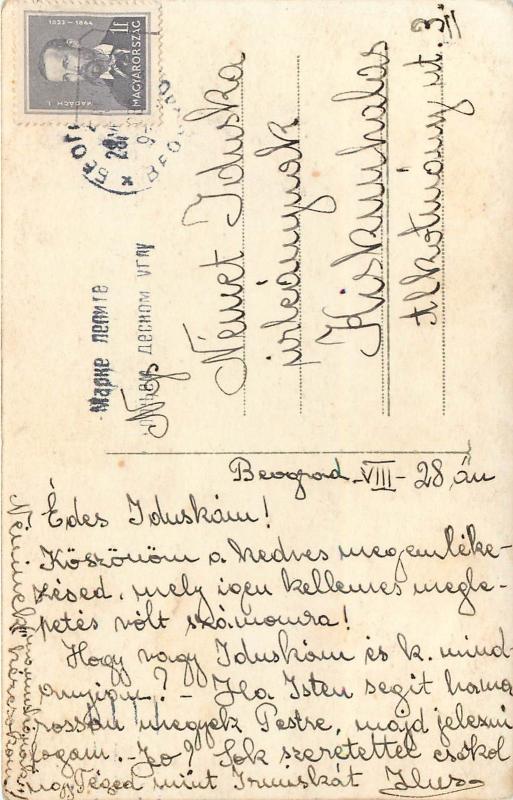 1823-1864
1f
MAGYARORSZÁG
MADÁCH I.
БЕОГРАД
28
BEOGRAD
Марке лепите
десном углу
Nags
Német Iduska
urleánynak
Kiskunhalas
Alkotmány ut. 3.
II
Beograd. VIII - 28, án
Édes Iduskám!
Köszönöm a kedves megemléke-
zésed, mely igen kellemes megle-
petés vólt számomra!
Hogy vagy Iduskám és k. mind-
annyian? - Ha Isten segit hama-
rossan megyek Pestre, majd jelezni
fogom. - Jo? Sok szeretettel csókol
ugy Téged mint Irmuskát Ilus
Néninek